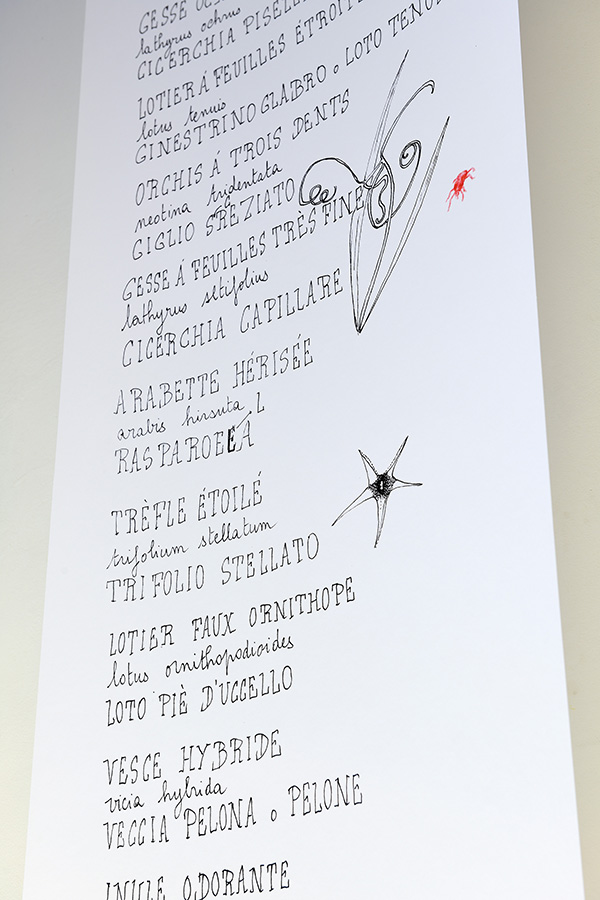 GESSE
lathyrus ochrus
CICERCHIA
LOTIER Á FEUILLES
lotus tenuis
GINESTRINO GLABRO o LOTO
ORCHIS Á TROIS DENTS
neotina tridentata
GIGLIO SREZIATO
GESSE Á FEUILLES TRÈS FINE
lathyrus setifolius
CICERCHIA CAPILLARE
ARABETTE HÉRISÉE
arabis hirsuta L
RASPAROELA
TRÈFLE ÉTOILÉ
trifolium stellatum
TRIFOLIO STELLATO
LOTIER FAUX ORNITHOPE
lotus ornithopodioides
LOTO PIÈ D'UCCELLO
VESCE HYBRIDE
vicia hybrida
VECCIA PELONA o PELONE
INULE ODORANTE